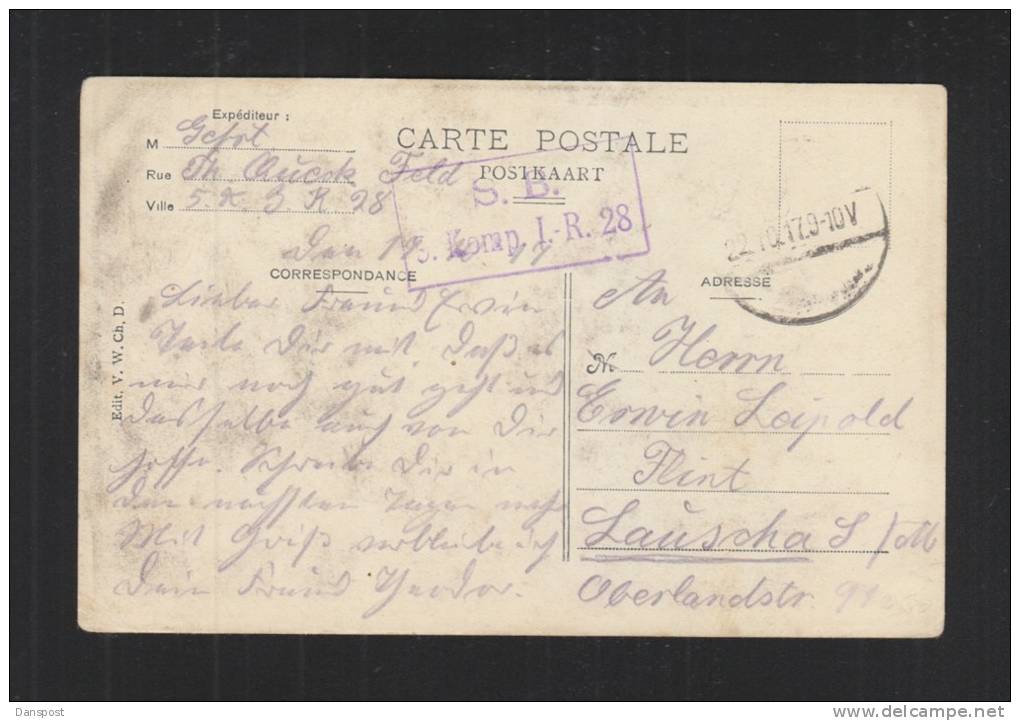 Expéditeur :
M Gefrt.
Rue Th. Queck Feld
Ville 5. K. J. R. 28
CARTE POSTALE
POSTKAART
S. B.
5. Komp. I.-R. 28
22.10.17.9-10V
Den
CORRESPONDANCE
ADRESSE
Lieber Freund Erwin
Teile Dir mit daß es
mir noch gut geht und
dasselbe auch von Dir
hoffe. Schreibe Dir in
den nächsten Tagen mehr
Mit Gruß verbleibe ich
Dein Freund Theodor.
Edit. V. W. Ch. D.
An
M Herrn
Erwin Leipold
Flint
Lauscha S/M
Oberlandstr.
Danspost
www.delcampe.net